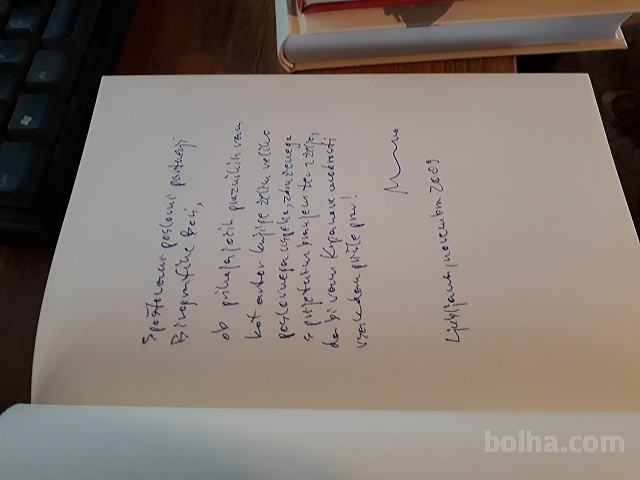 Spoštovani poslovni partnerji
Birografike Bori,
ob prihajajočih praznikih vam
kot avtor knjige želim veliko
poslovnega uspeha, združenega
s prijetnim branjem ter z željo,
da bi vam Krpanove modrosti
vsak dan prišle prav!
Ljubljana, novembra 2009
bolha.com